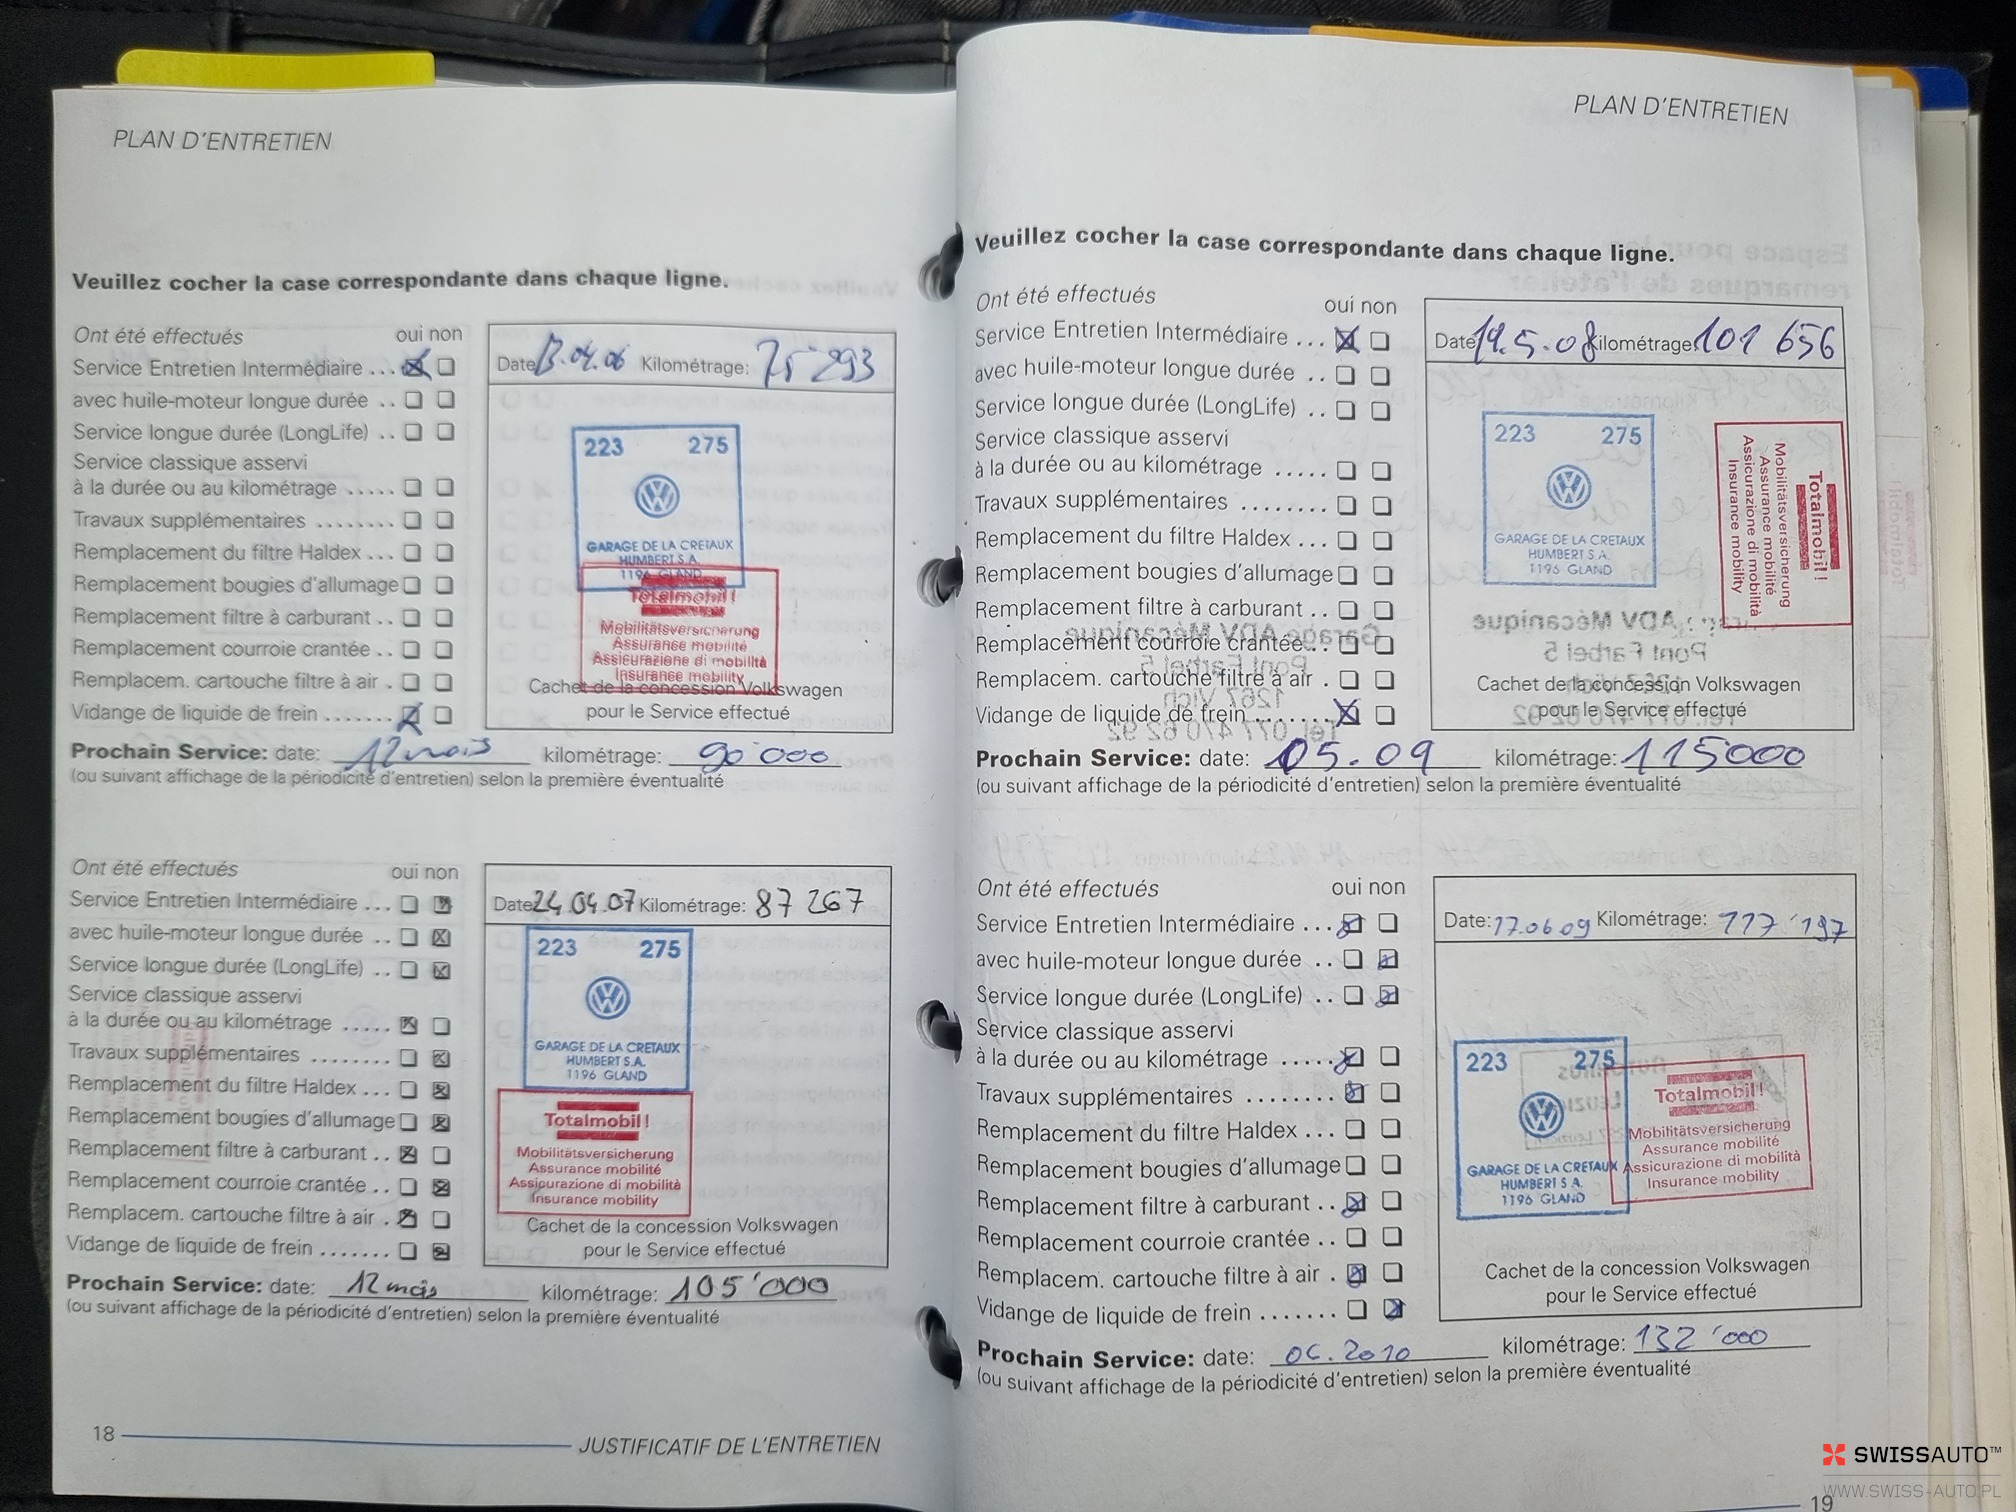 PLAN D'ENTRETIEN
Veuillez cocher la case correspondante dans chaque ligne.
Ont été effectués oui non
Service Entretien Intermédiaire ...
avec huile-moteur longue durée ..
Service longue durée (LongLife) ..
Service classique asservi
à la durée ou au kilométrage .....
Travaux supplémentaires ........
Remplacement du filtre Haldex ...
Remplacement bougies d'allumage
Remplacement filtre à carburant ..
Remplacement courroie crantée ..
Remplacem. cartouche filtre à air .
Vidange de liquide de frein .......
Date 13.04.06 Kilométrage: 75'293
223 275
GARAGE DE LA CRETAUX
HUMBERT S.A.
1196 GLAND
Totalmobil!
Mobilitätsversicherung
Assurance mobilité
Assicurazione di mobilità
Insurance mobility
Cachet de la concession Volkswagen
pour le Service effectué
Prochain Service: date: 12 mois kilométrage: 90'000
(ou suivant affichage de la périodicité d'entretien) selon la première éventualité
Ont été effectués oui non
Service Entretien Intermédiaire ...
avec huile-moteur longue durée ..
Service longue durée (LongLife) ..
Service classique asservi
à la durée ou au kilométrage .....
Travaux supplémentaires ........
Remplacement du filtre Haldex ...
Remplacement bougies d'allumage
Remplacement filtre à carburant ..
Remplacement courroie crantée ..
Remplacem. cartouche filtre à air .
Vidange de liquide de frein .......
Date 24.04.07 Kilométrage: 87 267
223 275
GARAGE DE LA CRETAUX
HUMBERT S.A.
1196 GLAND
Totalmobil!
Mobilitätsversicherung
Assurance mobilité
Assicurazione di mobilità
Insurance mobility
Cachet de la concession Volkswagen
pour le Service effectué
Prochain Service: date: 12 mois kilométrage: 105'000
(ou suivant affichage de la périodicité d'entretien) selon la première éventualité
18 JUSTIFICATIF DE L'ENTRETIEN
PLAN D'ENTRETIEN
Veuillez cocher la case correspondante dans chaque ligne.
Ont été effectués oui non
Service Entretien Intermédiaire ...
avec huile-moteur longue durée ..
Service longue durée (LongLife) ..
Service classique asservi
à la durée ou au kilométrage .....
Travaux supplémentaires ........
Remplacement du filtre Haldex ...
Remplacement bougies d'allumage
Remplacement filtre à carburant ..
Remplacement courroie crantée ..
Remplacem. cartouche filtre à air .
Vidange de liquide de frein .......
Date 19.5.08 Kilométrage 101 656
223 275
GARAGE DE LA CRETAUX
HUMBERT S.A.
1196 GLAND
Totalmobil!
Mobilitätsversicherung
Assurance mobilité
Assicurazione di mobilità
Insurance mobility
Cachet de la concession Volkswagen
pour le Service effectué
Prochain Service: date: 05.09 kilométrage: 115000
(ou suivant affichage de la périodicité d'entretien) selon la première éventualité
Ont été effectués oui non
Service Entretien Intermédiaire ...
avec huile-moteur longue durée ..
Service longue durée (LongLife) ..
Service classique asservi
à la durée ou au kilométrage .....
Travaux supplémentaires ........
Remplacement du filtre Haldex ...
Remplacement bougies d'allumage
Remplacement filtre à carburant ..
Remplacement courroie crantée ..
Remplacem. cartouche filtre à air .
Vidange de liquide de frein .......
Date: 17.06.09 Kilométrage: 117'197
223 275
GARAGE DE LA CRETAUX
HUMBERT S.A.
1196 GLAND
Totalmobil!
Mobilitätsversicherung
Assurance mobilité
Assicurazione di mobilità
Insurance mobility
Cachet de la concession Volkswagen
pour le Service effectué
Prochain Service: date: 06.2010 kilométrage: 132'000
(ou suivant affichage de la périodicité d'entretien) selon la première éventualité
SWISSAUTO™
WWW.SWISS-AUTO.PL
19